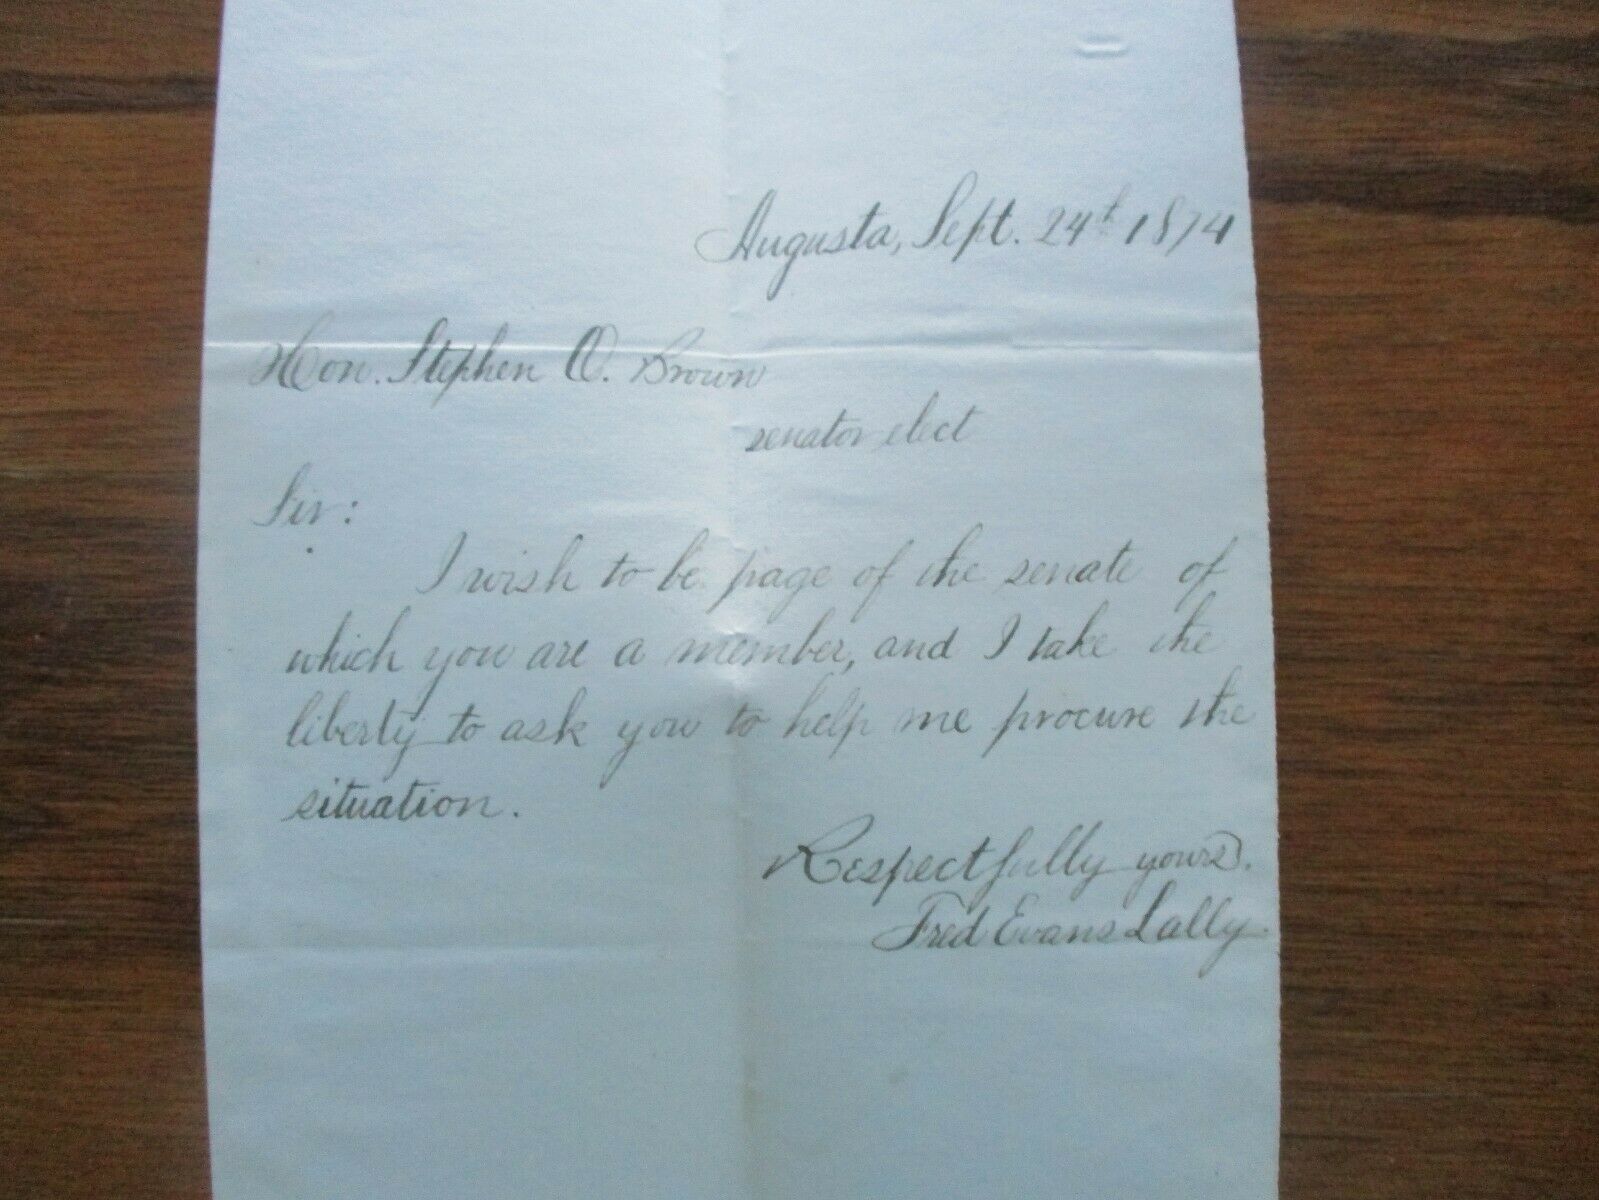 Augusta, Sept. 24th 1874
Hon. Stephen O. Brown
senator elect
Sir:
I wish to be page of the senate of
which you are a member, and I take the
liberty to ask you to help me procure the
situation.
Respectfully yours.
Fred Evans Lally.